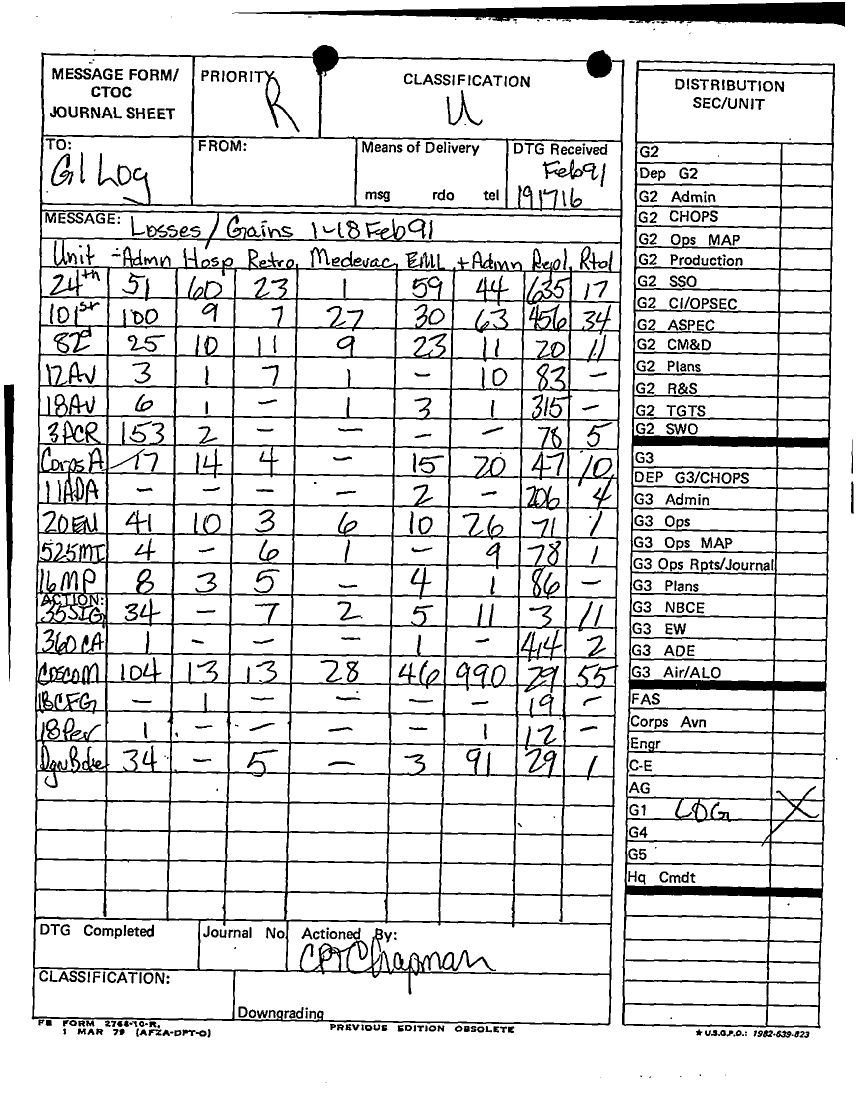 MESSAGE FORM/ CTOC JOURNAL SHEET
PRIORITY R
CLASSIFICATION U
TO: G1 Log
FROM:
Means of Delivery
msg rdo tel
DTG Received
Feb91
191716
MESSAGE: Losses/Gains 1-18 Feb 91
Unit -Admn Hosp Retro Medevac EML +Admn Repl Rtol
24th 51 60 23 1 59 44 635 17
101st 100 9 7 27 30 63 456 34
82d 25 10 11 9 23 11 20 11
12AV 3 1 7 1 - 10 83 -
18AV 6 1 - 1 3 1 315 -
3ACR 153 2 - - - - 78 5
CorpsA 17 14 4 - 15 20 47 10
11ADA - - - - 2 - 206 4
20EN 41 10 3 6 10 26 71 1
525MI 4 - 6 1 - 9 78 1
16MP 8 3 5 - 4 1 86 -
ACTION:
35SIG 34 - 7 2 5 11 3 11
360CA 1 - - - 1 - 414 2
COSCOM 104 13 13 28 46 990 29 55
18CFG - 1 - - - - 19 -
18Per 1 - - - - 1 12 -
Dgn Bde 34 - 5 - 3 91 29 1
DTG Completed
Journal No.
Actioned By:
CPT Chapman
CLASSIFICATION:
Downgrading
FB FORM 2768-10-R,
1 MAR 79 (AFZA-DPT-O)
PREVIOUS EDITION OBSOLETE
DISTRIBUTION
SEC/UNIT
G2
Dep G2
G2 Admin
G2 CHOPS
G2 Ops MAP
G2 Production
G2 SSO
G2 CI/OPSEC
G2 ASPEC
G2 CM&D
G2 Plans
G2 R&S
G2 TGTS
G2 SWO
G3
DEP G3/CHOPS
G3 Admin
G3 Ops
G3 Ops MAP
G3 Ops Rpts/Journal
G3 Plans
G3 NBCE
G3 EW
G3 ADE
G3 Air/ALO
FAS
Corps Avn
Engr
C-E
AG
G1 LOG X
G4
G5
Hq Cmdt
★ U.S.G.P.O.: 1982-639-823